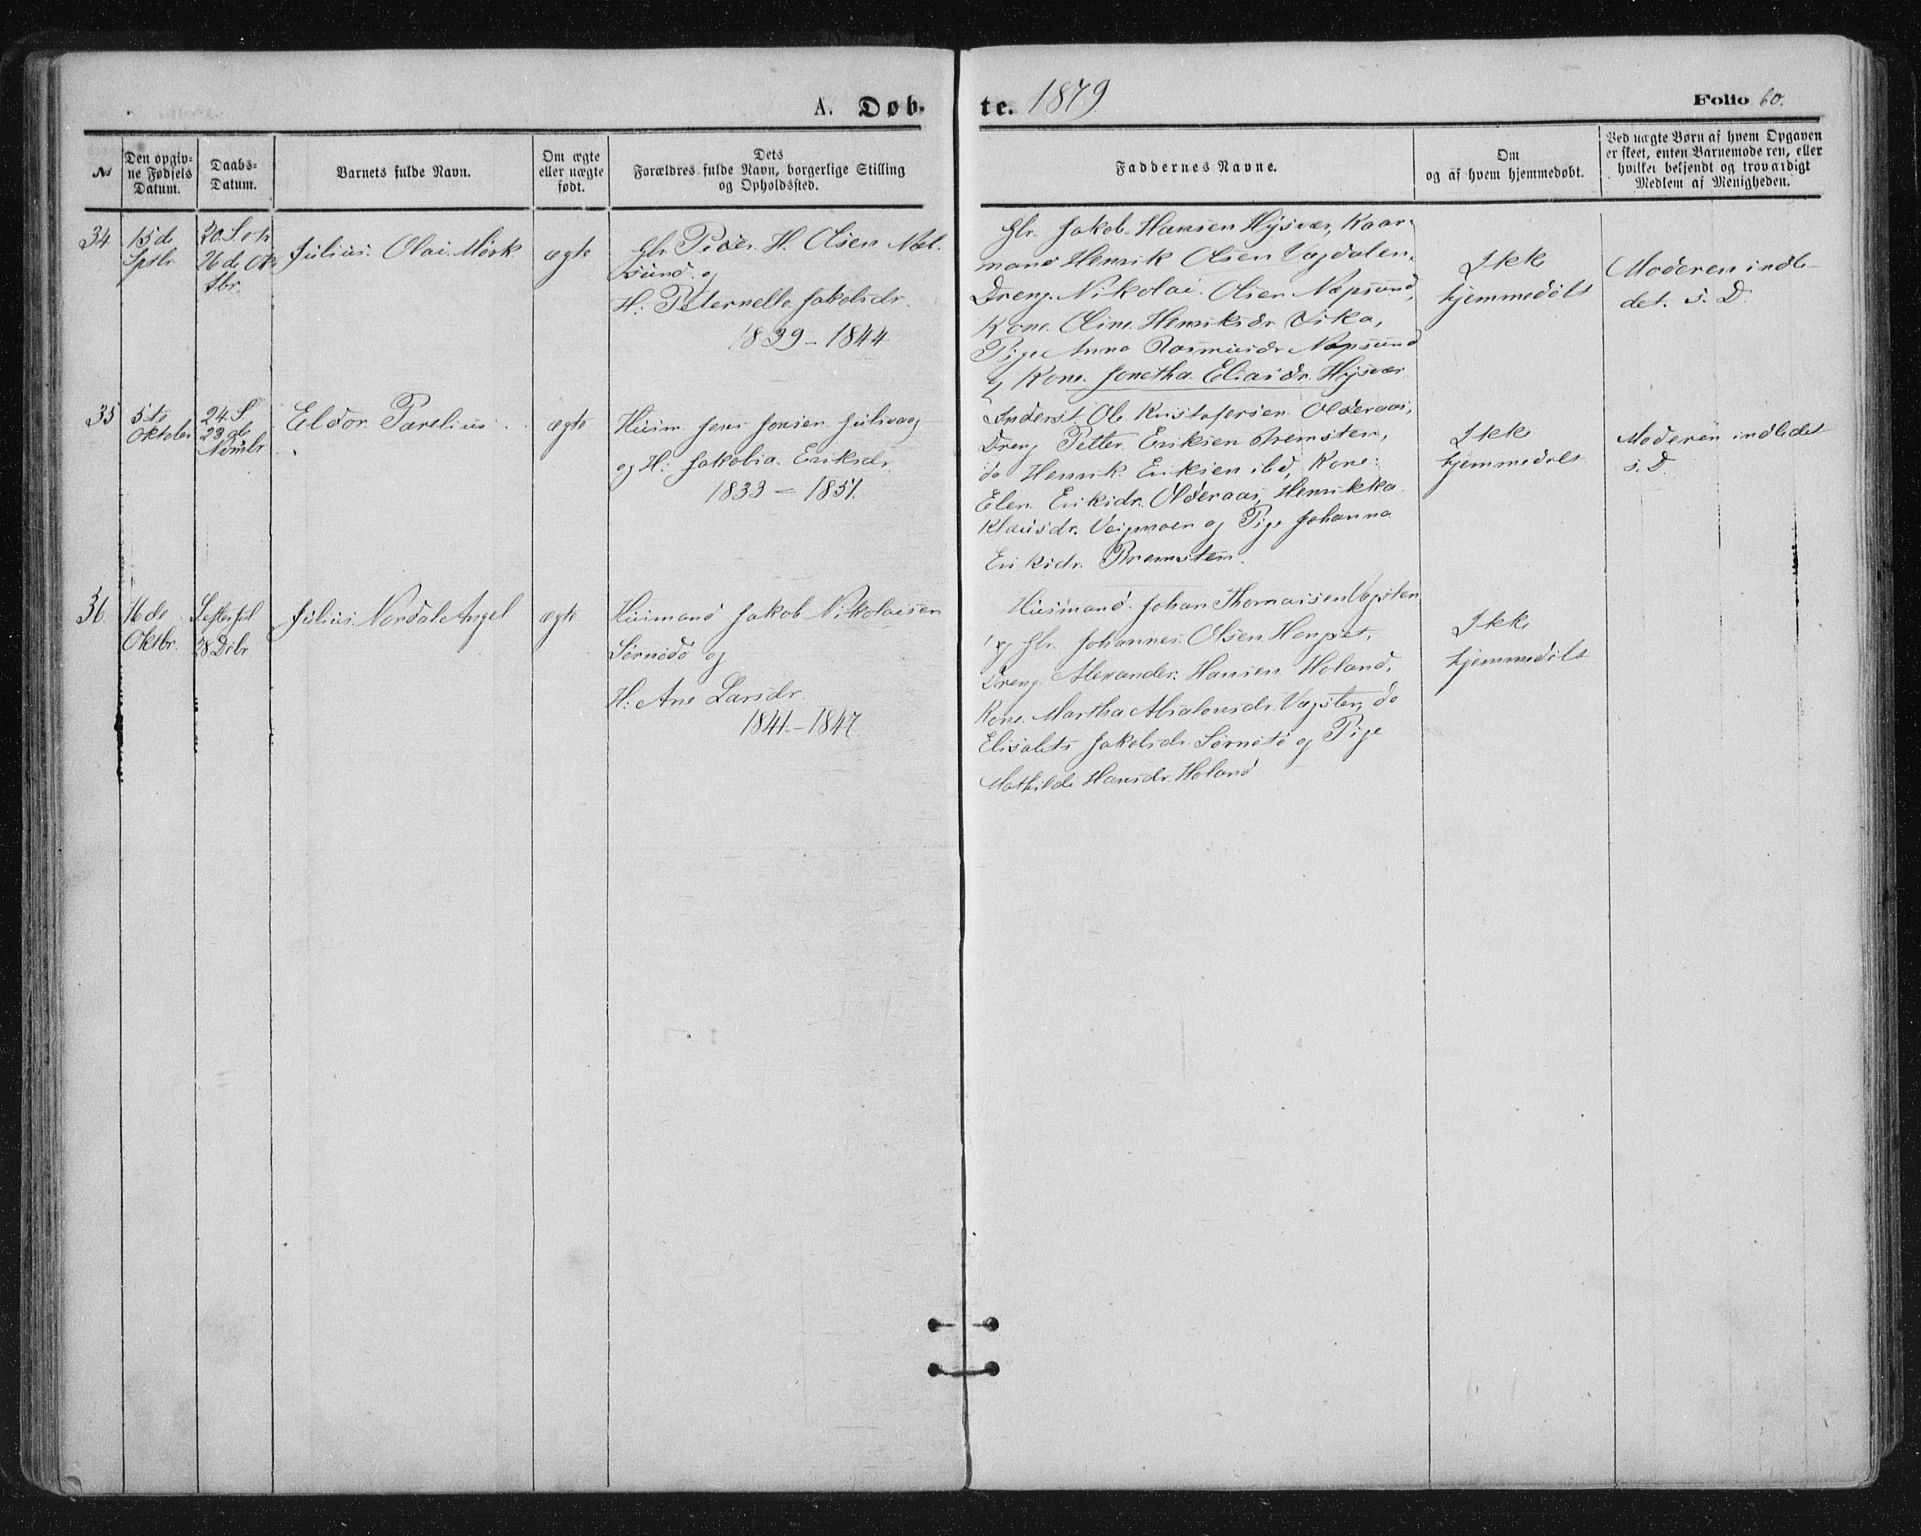 A. Døb- te. 1879
Folio 60.
№
Den opgiv-
ne Fødsels
Datum.
Daabs-
Datum.
Barnets fulde Navn.
Om ægte
eller uægte
født.
Dets
Forældres fulde Navn, borgerlige Stilling
og Opholdssted.
Faddernes Navne.
Om
og af hvem hjemmedøbt.
Ved uægte Børn af hvem Opgaven
er skeet, enten Barnemoderen, eller
hvilket bekjendt og troværdigt
Medlem af Menigheden.
34
15de
Sptbr
20 S.
26de Ok-
tbr.
Julius Olai Mørk
ægte
Gbr. Peder H. Olsen
sund og
H: Peternelle Jakobsdr.
1839 - 1844
Gbr. Jakob Hansen Hysvær, Kaar-
mand Henrik Olsen Vægdalen,
Dreng Nikolai Olsen Næpsund,
Kone Oline Henriksdr. Vika,
Pige Anna Rasmusdr. Næpsund
og Kone Jonetha Eliasdr. Hysvær
Ikke
hjemmedøbt
Moderen indle-
det. s. D.
35
5te
Oktober
24. S.
23de
Novmbr
Eldor Parelius
ægte
Husm. Jens Jonsen
og H: Jakobia Eriksdr.
1833 - 1851.
Inderst Ole Kristofersen Olderaas,
Dreng Petter Eriksen Bremsten,
do Henrik Eriksen ibd, Kone
Elen Eriksdr. Olderaas, Henrikka
Klausdr. Veigmoen og Pige Johanna
Eriksdr. Bremsten.
Ikke
hjemmedøbt
Moderen indledet
s. D.
36
16de
Oktbr.
S. efter Jul
28 Dcbr.
Julius Nordale Angel
ægte
Husmand Jakob Nikolaisen
Sørnodø og
H: Ane Larsdr.
1841 - 1847
Husmand Johan Thomassen Vægsten
og Gbr. Johannes Olsen Hongset,
Dreng Alexander Hansen Holand,
Kone Martha Absalonsdr. Vægsten, do
Elisabets Jakobsdr. Sørnodø og Pige
Mathilde Hansdr. Holand
Ikke
hjemmedøbt